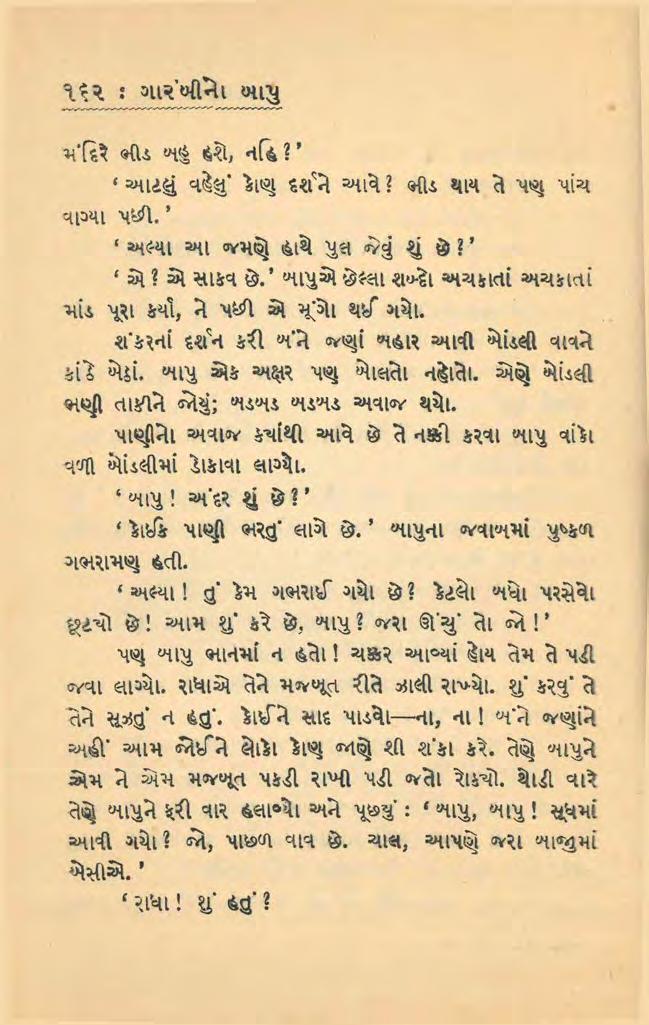 ૧૬૨ : ગારંબીનો બાપુ
મંદિરે ભીડ બહુ હશે, નહિ?’
‘આટલું વહેલું કોણ દર્શને આવે? ભીડ થાય તે પણ પાંચ
વાગ્યા પછી.’
‘અલ્યા આ જમણે હાથે પુલ જેવું શું છે?’
‘એ? એ સાકવ છે.’ બાપુએ છેલ્લા શબ્દો અચકાતાં અચકાતાં
માંડ પૂરા કર્યા, ને પછી એ મૂંગો થઈ ગયો.
શંકરનાં દર્શન કરી બંને જણાં બહાર આવી બોંડલી વાવને
કાંઠે બેઠાં. બાપુ એક અક્ષર પણ બોલતો નહોતો. એણે બોંડલી
ભણી તાકીને જોયું; બડબડ બડબડ અવાજ થયો.
પાણીનો અવાજ કયાંથી આવે છે તે નક્કી કરવા બાપુ વાંકો
વળી બોંડલીમાં ડોકાવા લાગ્યો.
‘બાપુ! અંદર શું છે?’
‘કોઈક પાણી ભરતું લાગે છે.’ બાપુના જવાબમાં પુષ્કળ
ગભરામણ હતી.
‘અલ્યા! તું કેમ ગભરાઈ ગયો છે? કેટલો બધો પરસેવો
છૂટયો છે! આમ શું કરે છે, બાપુ? જરા ઊંચું તો જો!’
પણ બાપુ ભાનમાં ન હતો! ચક્કર આવ્યાં હોય તેમ તે પડી
જવા લાગ્યો. રાધાએ તેને મજબૂત રીતે ઝાલી રાખ્યો. શું કરવું તે
તેને સૂઝતું ન હતું. કોઈને સાદ પાડવો—ના, ના! બંને જણાંને
અહીં આમ જોઈને લોકો કોણ જાણે શી શંકા કરે. તેણે બાપુને
એમ ને એમ મજબૂત પકડી રાખી પડી જતો રોકયો. થોડી વારે
તેણે બાપુને ફરી વાર હલાવ્યો અને પૂછયું : ‘બાપુ, બાપુ! સૂધમાં
આવી ગયો? જો, પાછળ વાવ છે. ચાલ, આપણે જરા બાજુમાં
બેસીએ.’
‘રાધા! શું હતું?